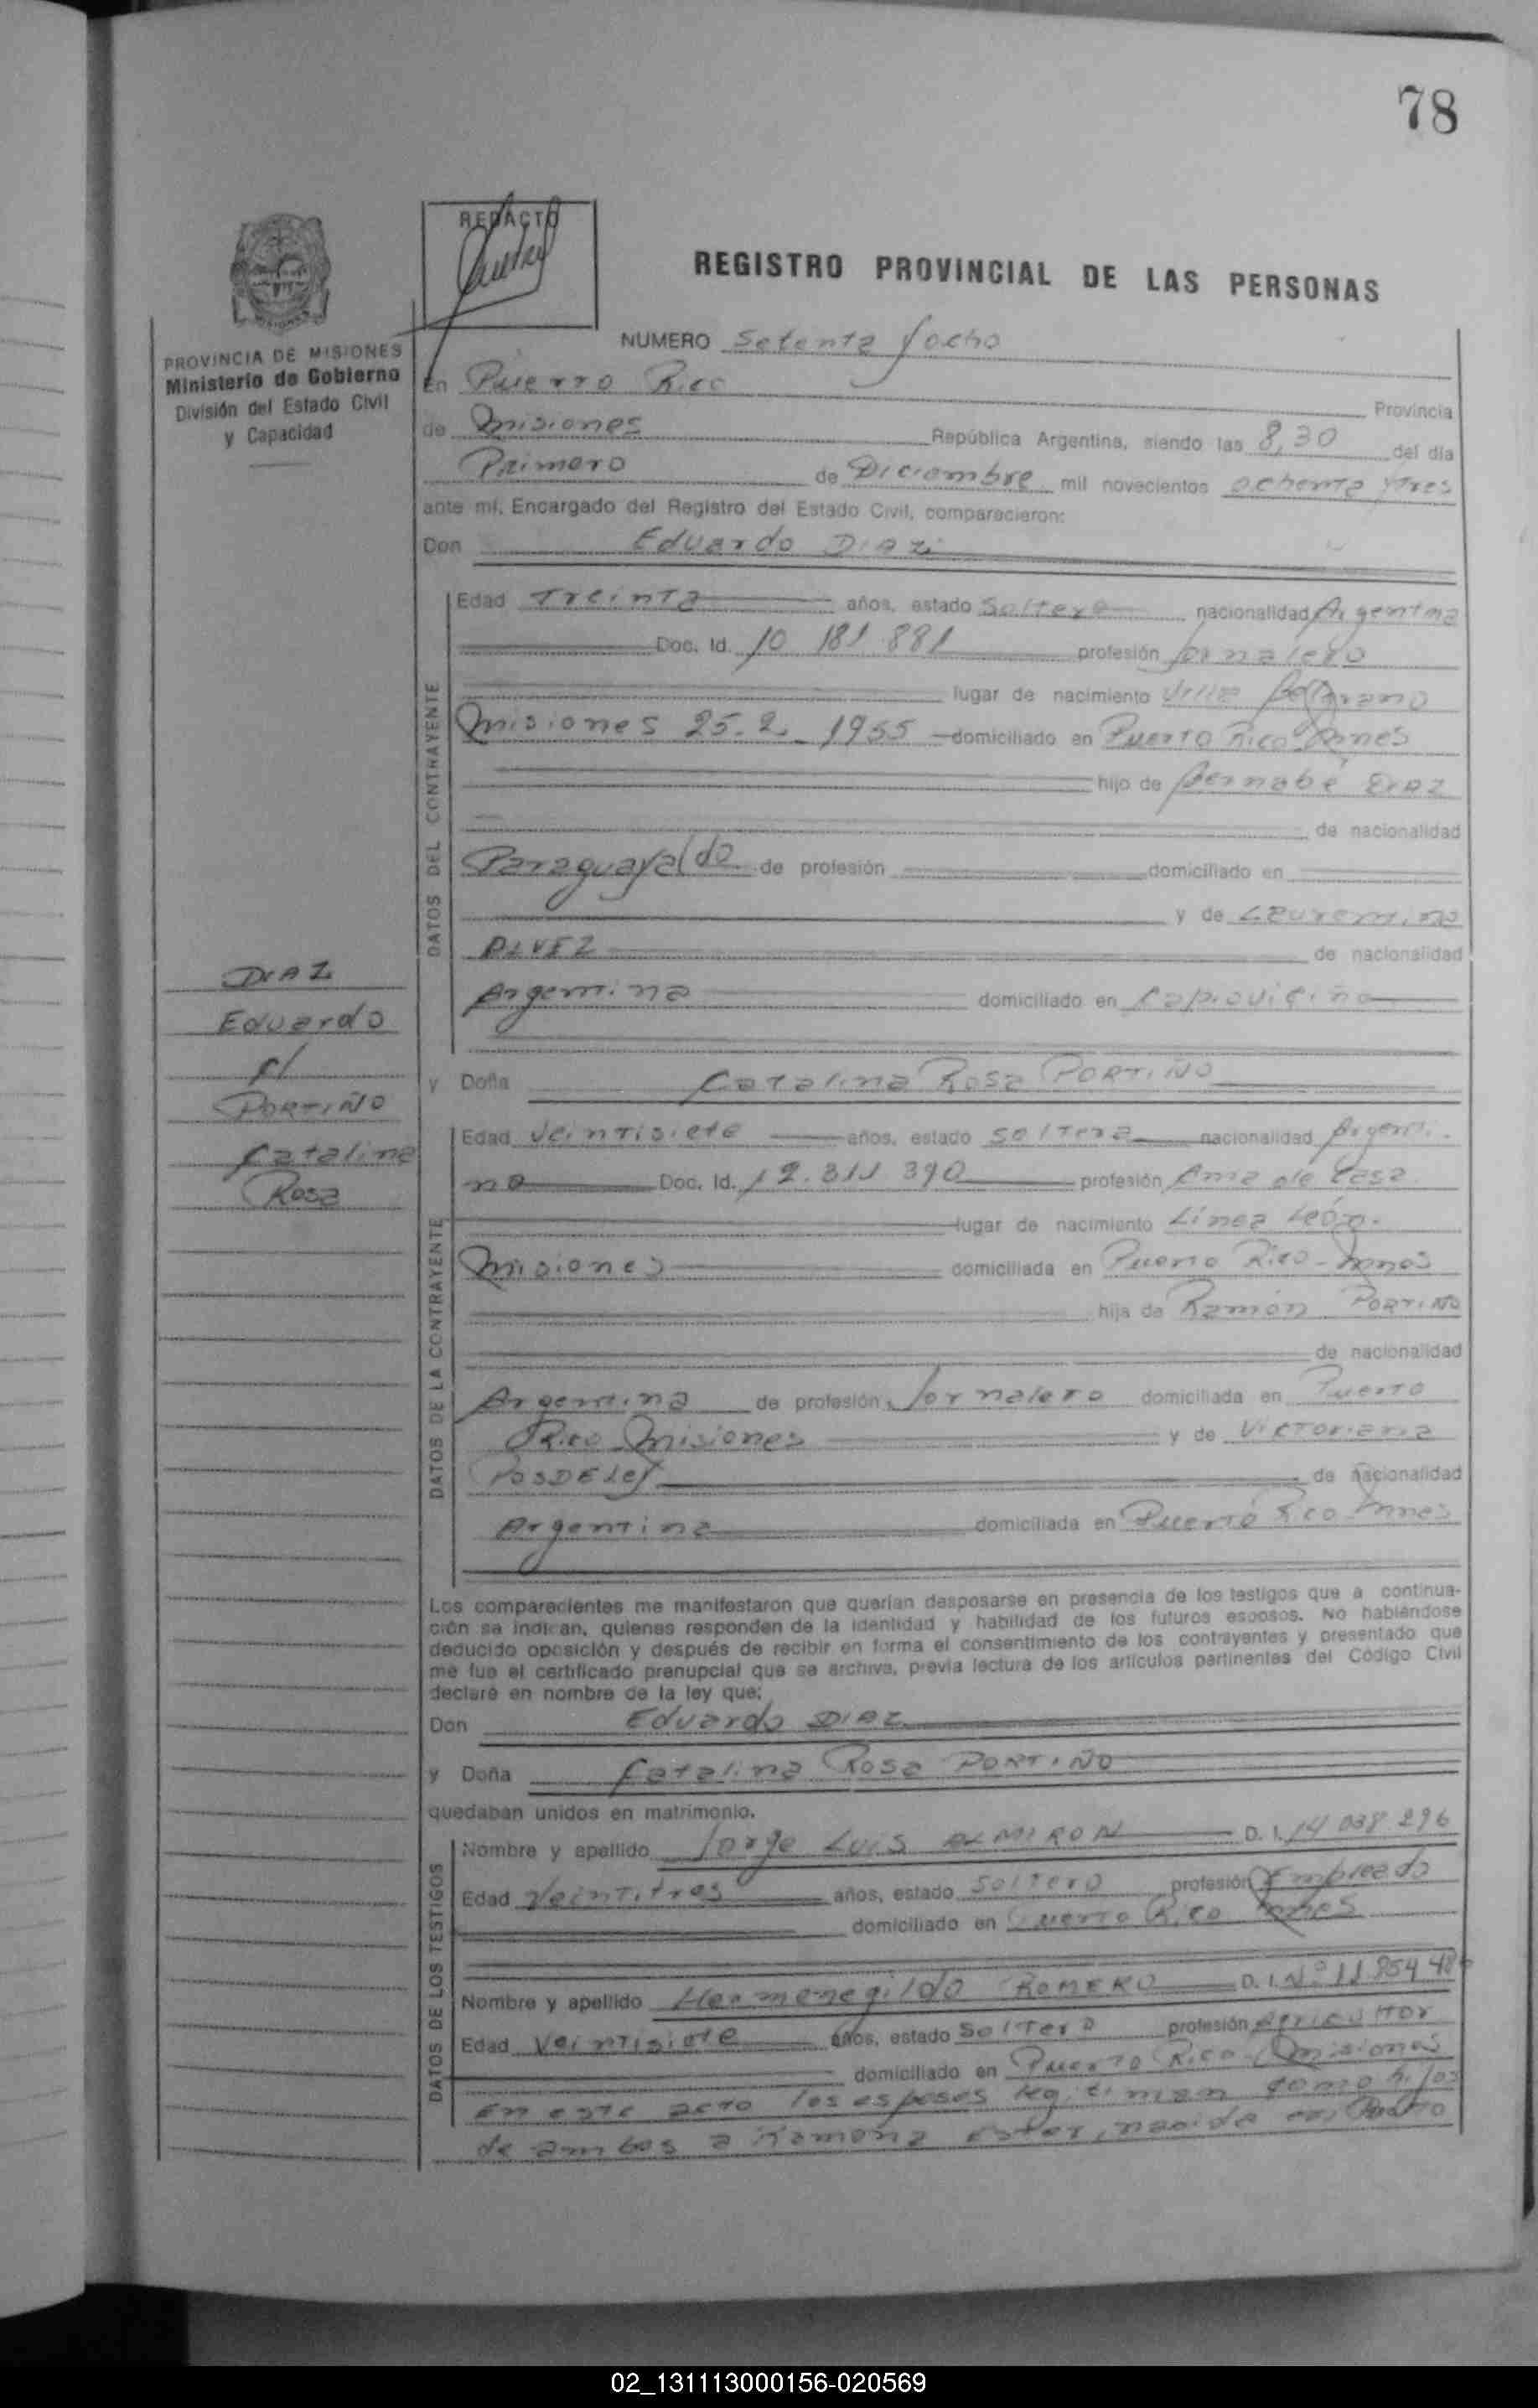 78
REDACTO
REGISTRO PROVINCIAL DE LAS PERSONAS
PROVINCIA DE MISIONES
Ministerio de Gobierno
División del Estado Civil
y Capacidad
NUMERO Setenta y ocho
En Puerto Rico Provincia
de Misiones República Argentina, siendo las 8,30 del día
Primero de Diciembre mil novecientos ochenta y tres
ante mí, Encargado del Registro del Estado Civil, comparecieron:
Don Eduardo DIAZ
DATOS DEL CONTRAYENTE
Edad Treinta años, estado Soltero nacionalidad Argentina
Doc. Id. 10 181 881 profesión Jornalero
lugar de nacimiento Villa Belgrano
Misiones 25.2.1955 domiciliado en Puerto Rico
hijo de Bernabé DIAZ
de nacionalidad
Paraguaya de profesión domiciliado en
y de
ALVEZ de nacionalidad
Argentina domiciliado en Capioviciño
DIAZ
Eduardo
c/
PORTIÑO
Catalina
Rosa
y Doña Catalina Rosa PORTIÑO
DATOS DE LA CONTRAYENTE
Edad Veintisiete años, estado soltera nacionalidad Argenti-
na Doc. Id. 12.311 390 profesión Ama de Casa
lugar de nacimiento Línea León-
Misiones domiciliada en Puerto Rico - Mnes
hija de Ramón PORTIÑO
de nacionalidad
Argentina de profesión Jornalero domiciliada en Puerto
Rico Misiones y de Victoriana
POSDELEY de nacionalidad
Argentina domiciliada en Puerto Rico Mnes
Los comparecientes me manifestaron que querían desposarse en presencia de los testigos que a continua-
ción se indican, quienes responden de la identidad y habilidad de los futuros esposos. No habiéndose
deducido oposición y después de recibir en forma el consentimiento de los contrayentes y presentado que
me fue el certificado prenupcial que se archiva, previa lectura de los artículos pertinentes del Código Civil
declaré en nombre de la ley que:
Don Eduardo DIAZ
y Doña Catalina Rosa PORTIÑO
quedaban unidos en matrimonio.
DATOS DE LOS TESTIGOS
Nombre y apellido Jorge Luis ALMIRON D. I. 14 038 296
Edad Veintitres años, estado Soltero profesión Empleado
domiciliado en Puerto Rico Mnes
Nombre y apellido Hermenegildo ROMERO D. I. Nº 11 854
Edad Veintisiete años, estado Soltero profesión Agricultor
domiciliado en Puerto Rico - Misiones
En este acto los esposos legitiman como hijos
de ambos a Ramona Ester, nacida en Puerto
02_131113000156-020569